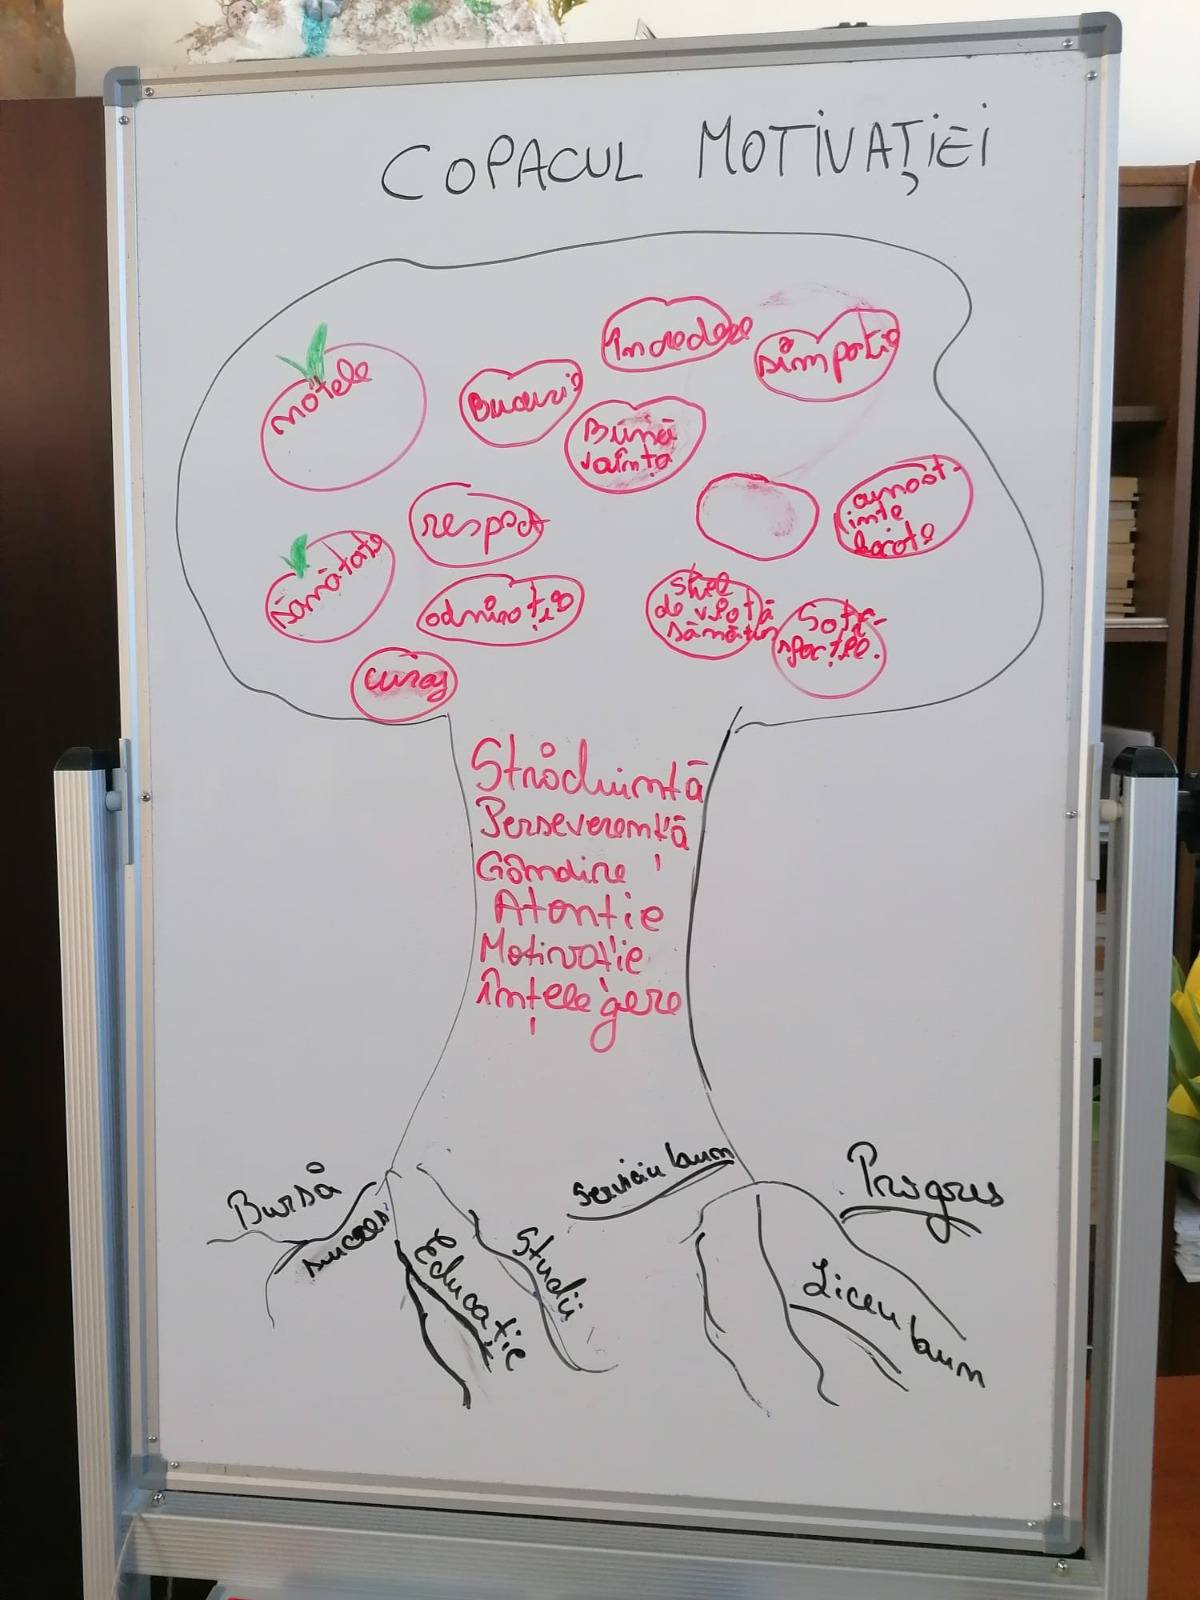 COPACUL MOTIVAȚIEI
încredere
simpatie
notele
Bucurie
Bună
voința
respect
cunoșt-
ințe
sănătate
admirație
stil
de viață
sănătos
Satis-
facție.
curaj
Străduință
Perseverență
Gândire
Atenție
Motivație
Înțelegere
Bursă
succes
Educație
Studii
Serviciu bun
Progres
Liceu bun